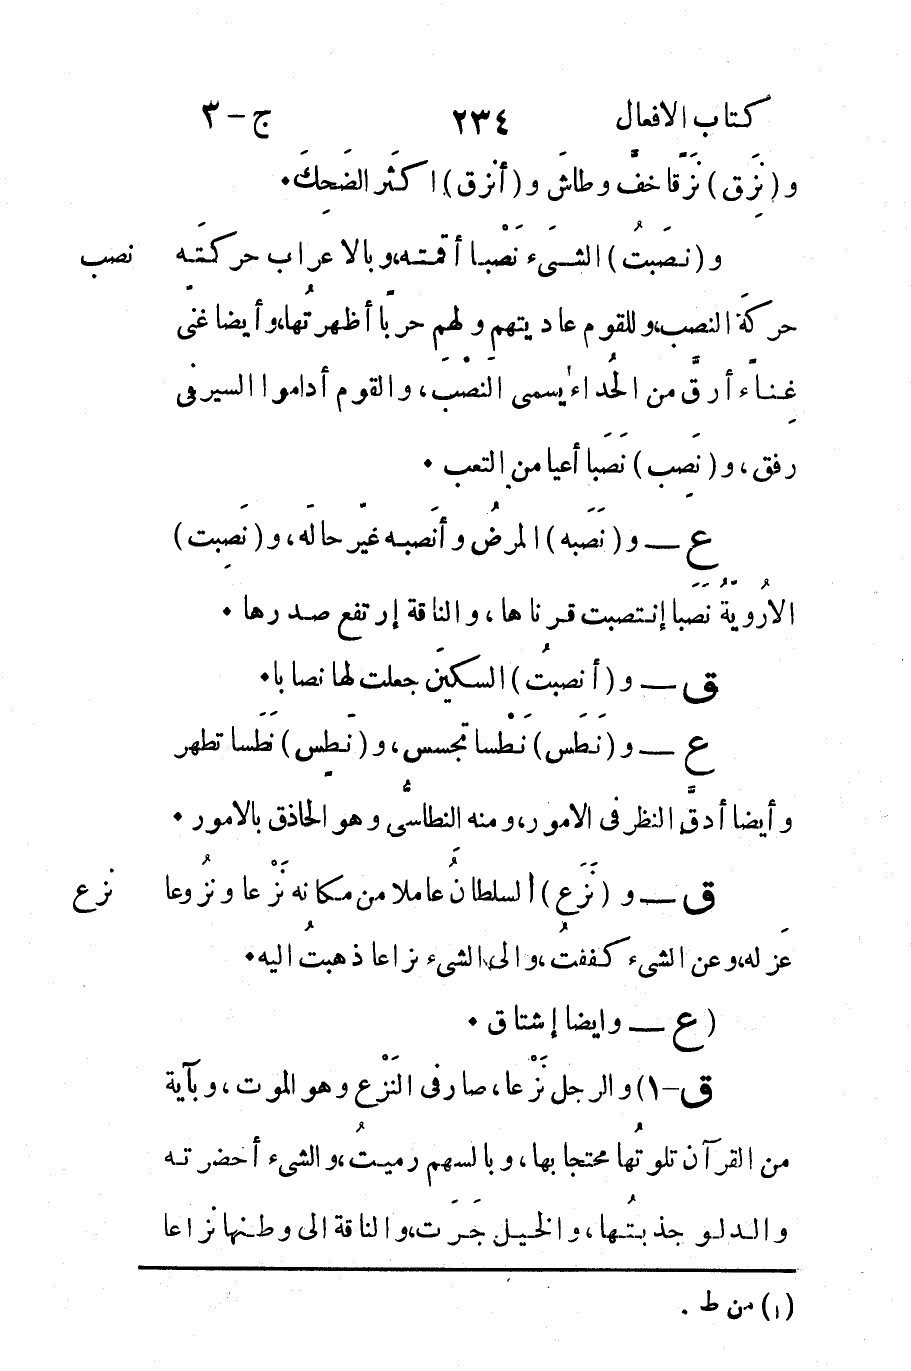 كتاب الافعال ٢٣٤ ج - ٣
و ( نَزِق ) نَزَقًا خفَّ وطاشَ و ( أنزق ) اكثَر الضَحِكَ .
و ( نصَبتُ ) الشىَء نَصْبا أقمته ، وبالاعراب حركتَه نصب
حركةَ النصبِ ، وللقوم عاديتهم ولهم حربًا أظهرتُها ، وأيضا غنى
غِناءً أرقَّ من الحُداء يسمى النَصْبَ ، والقوم أداموا السير فى
رفق ، و ( نَصِب ) نَصَبا أعيا من التعب .
ع ــ و ( نَصَبه ) المرضُ وأنصَبه غيّر حالَه ، و ( نَصِبت )
الاُرويّةُ نَصَبًا إنتصبت قرناها ، والناقة إرتفع صدرها .
ق ــ و ( أنصبتُ ) السكينَ جعلت لها نصابا .
ع ــ و ( نَطَس ) نَطْسا تجسس ، و ( نَطِس ) نَطَسا تطهر
وأيضا أدقَّ النظر فى الامور ، ومنه النطاسىُّ وهو الحاذق بالامور .
ق ــ و ( نَزَع ) السلطانُ عاملا من مكانه نَزْعا ونُزُوعا نزع
عَزله ، وعن الشىء كففتُ ، والى الشىء نزاعا ذهبتُ اليه .
( ع ــ وايضا إشتاق .
ق - ١ ) والرجل نَزْعا ، صار فى النَزْع وهو الموت ، وبآية
من القرآن تلوتُها محتجا بها ، وبالسهم رميتُ ، والشىء أحضرته
والدلو جذبتُها ، والخيل جَرَت ، والناقة الى وطنها نزاعا
( ١ ) من ط .